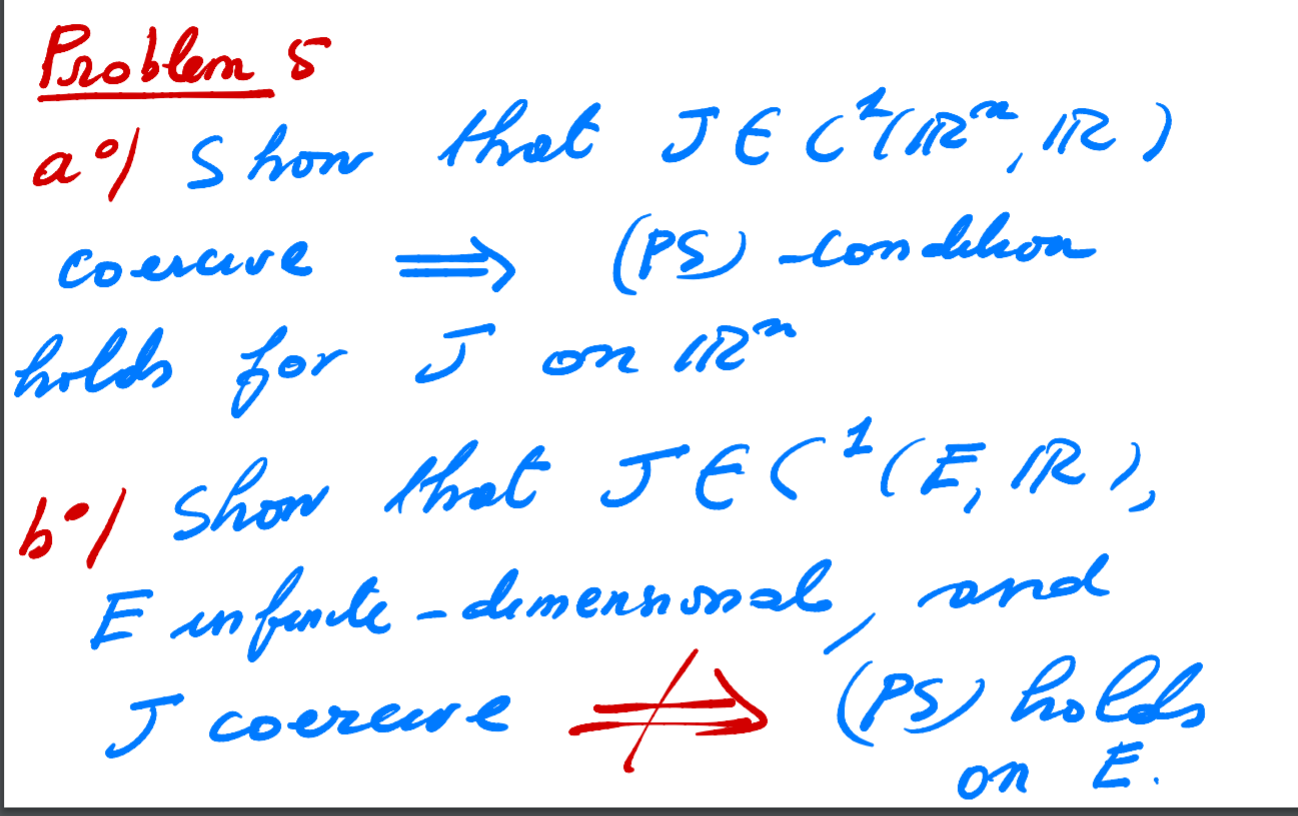 Problem 5
a°/ Show that J ∈ C¹(ℝⁿ, ℝ)
coercive ⟹ (PS)-condition
holds for J on ℝⁿ
b°/ Show that J ∈ C¹(E, ℝ),
E infinite-dimensional, and
J coercive ⇏ (PS) holds
on E.